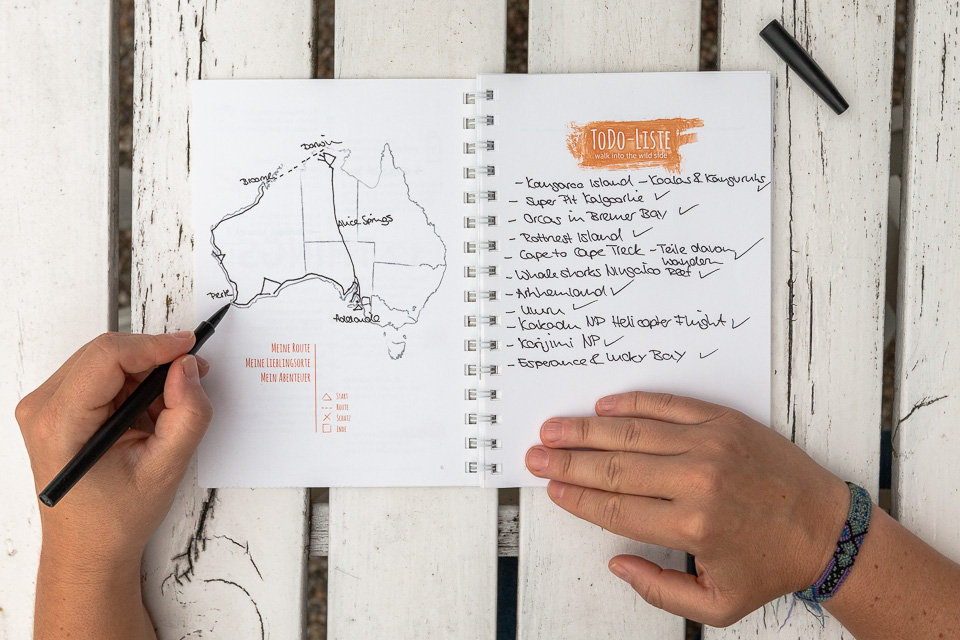 Darwin
Broome
Alice Springs
Perth
Adelaide
MEINE ROUTE
MEINE LIEBLINGSORTE
MEIN ABENTEUER
START
ROUTE
SCHATZ
ENDE
TODO-LISTE
walk into the wild side
- Kangaroo Island - Koalas & Kängurus ✓
- Super Pit Kalgoorlie ✓
- Orcas in Bremer Bay ✓
- Rottnest Island ✓
- Cape to Cape Treck - Teile davon wandern ✓
- Whalesharks Ningaloo Reef ✓
- Arnhemland ✓
- Uluru ✓
- Kakadu NP Helicopter Flight ✓
- Karijini NP ✓
- Esperance & Lucky Bay ✓